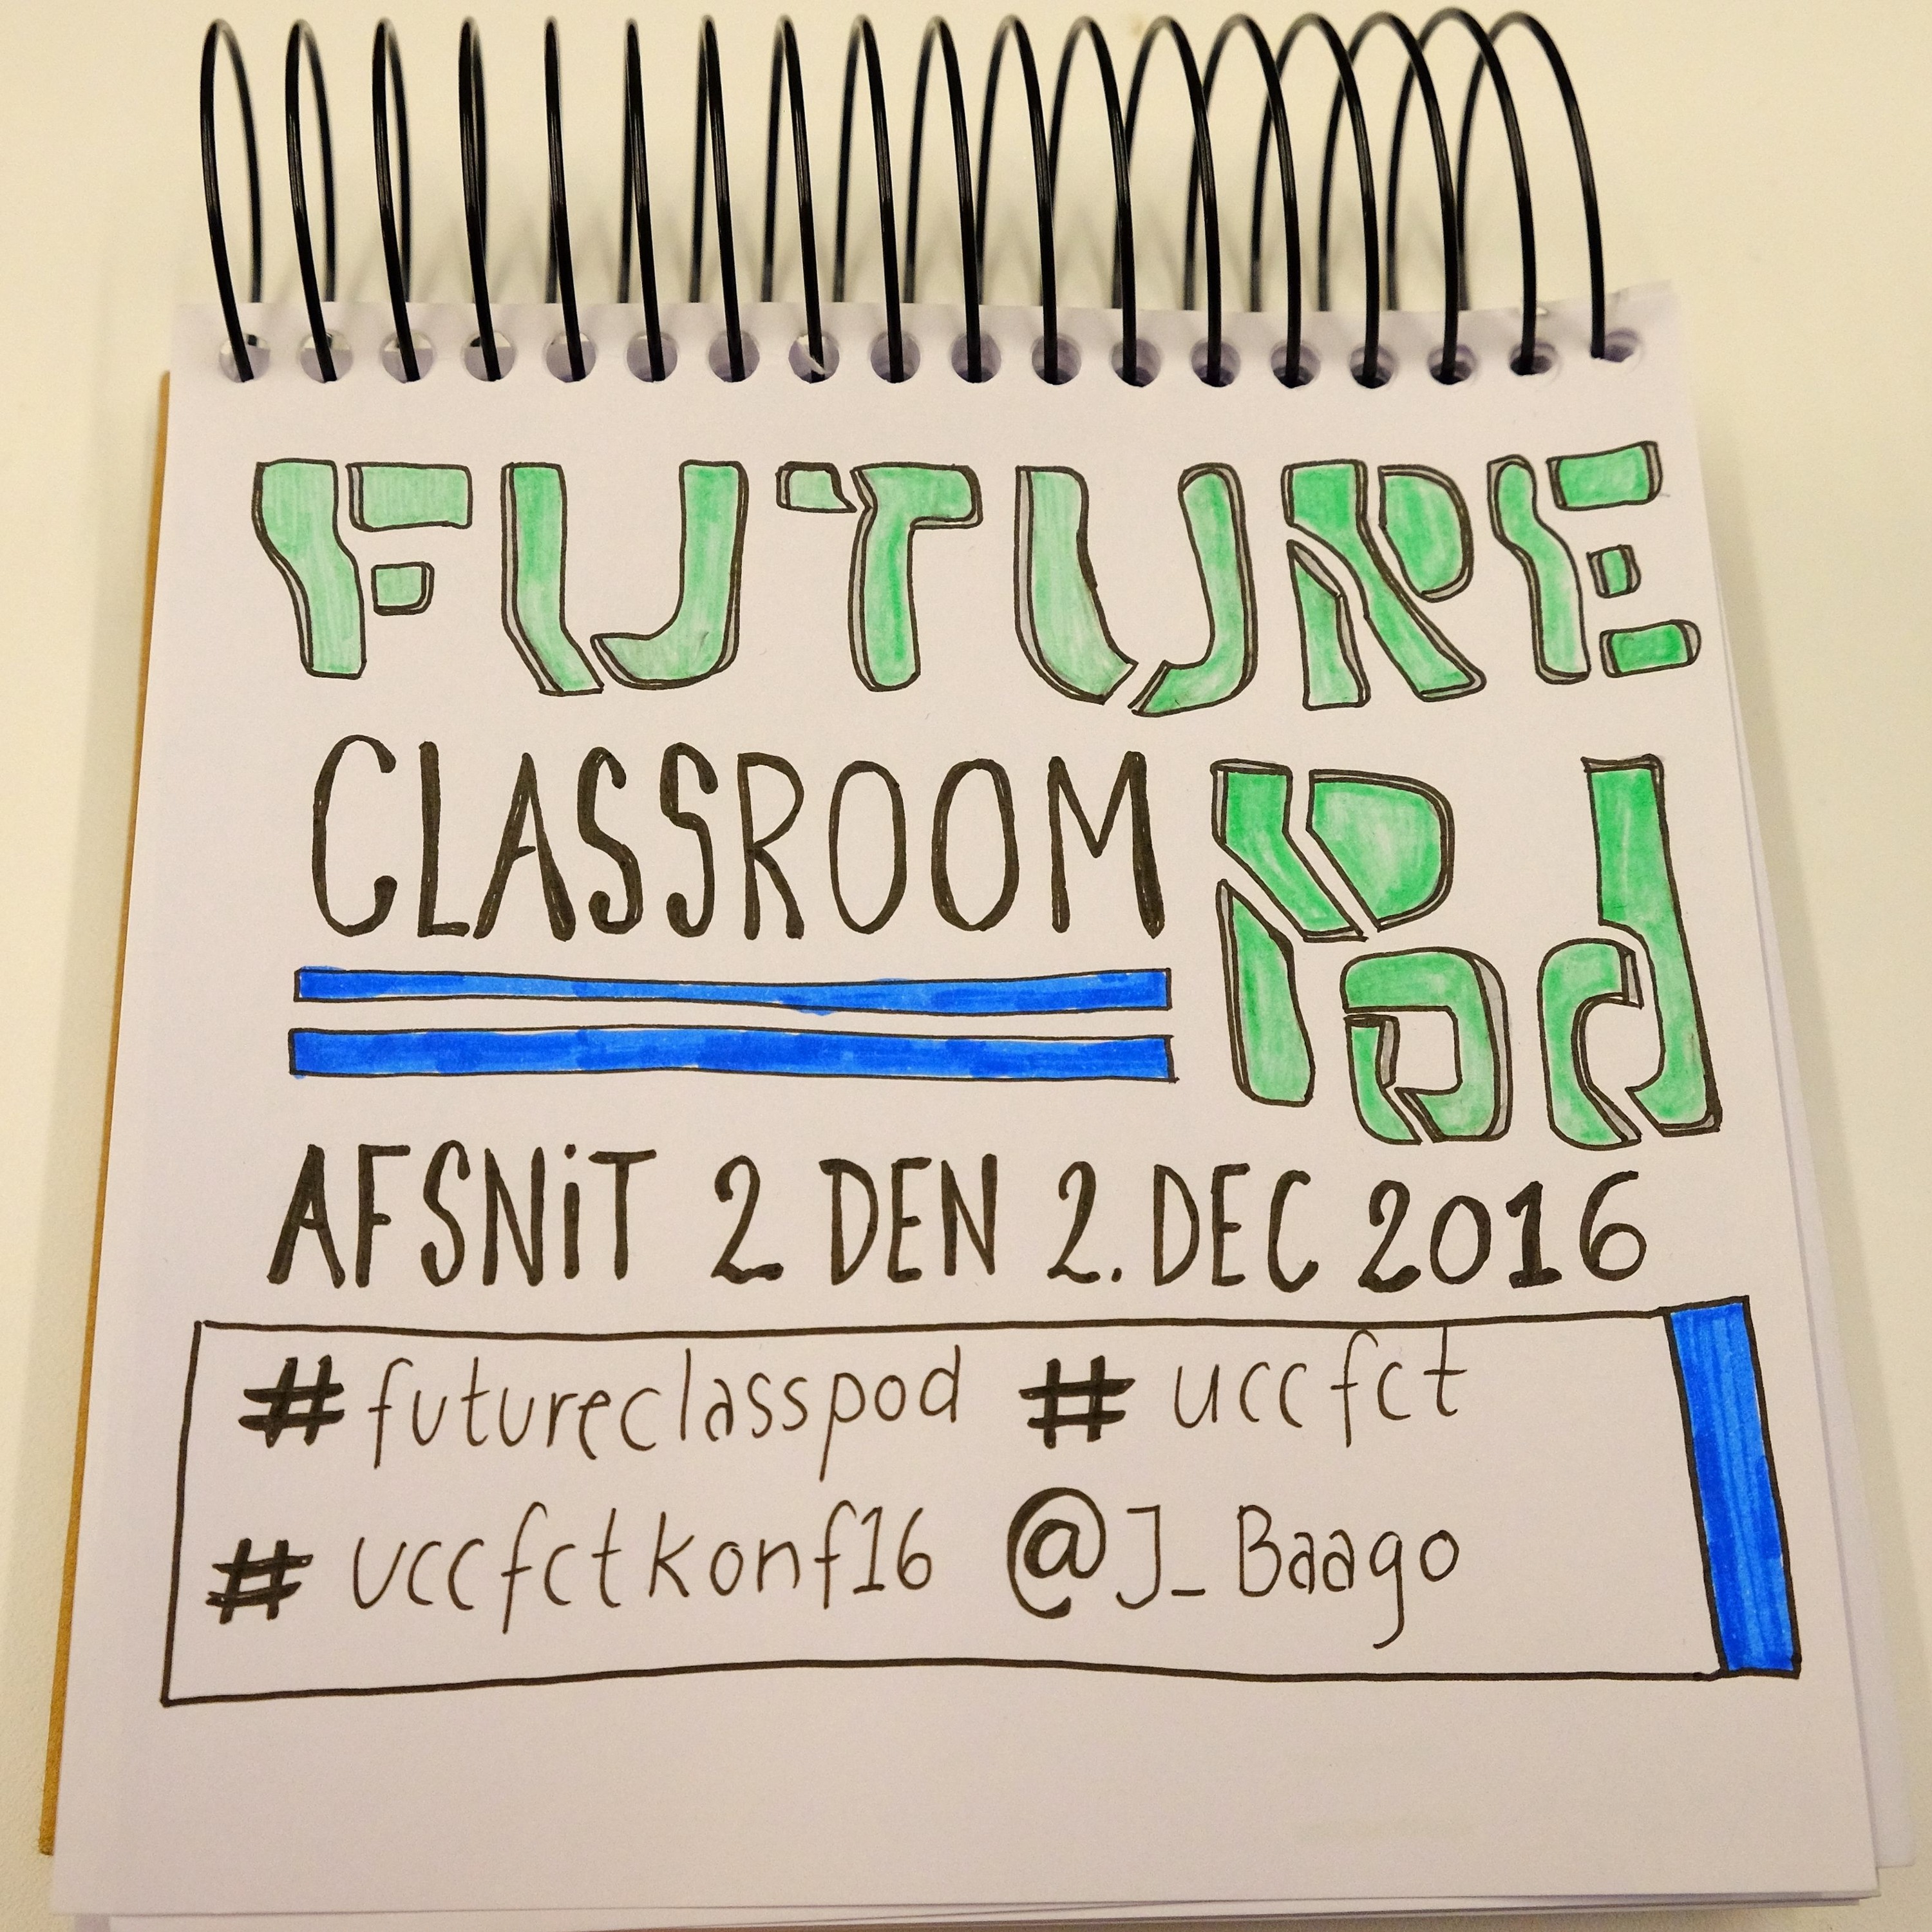 FUTURE
CLASSROOM Pod
AFSNiT 2 DEN 2. DEC 2016
#futureclasspod #uccfct
#uccfctkonf16 @J_Baago